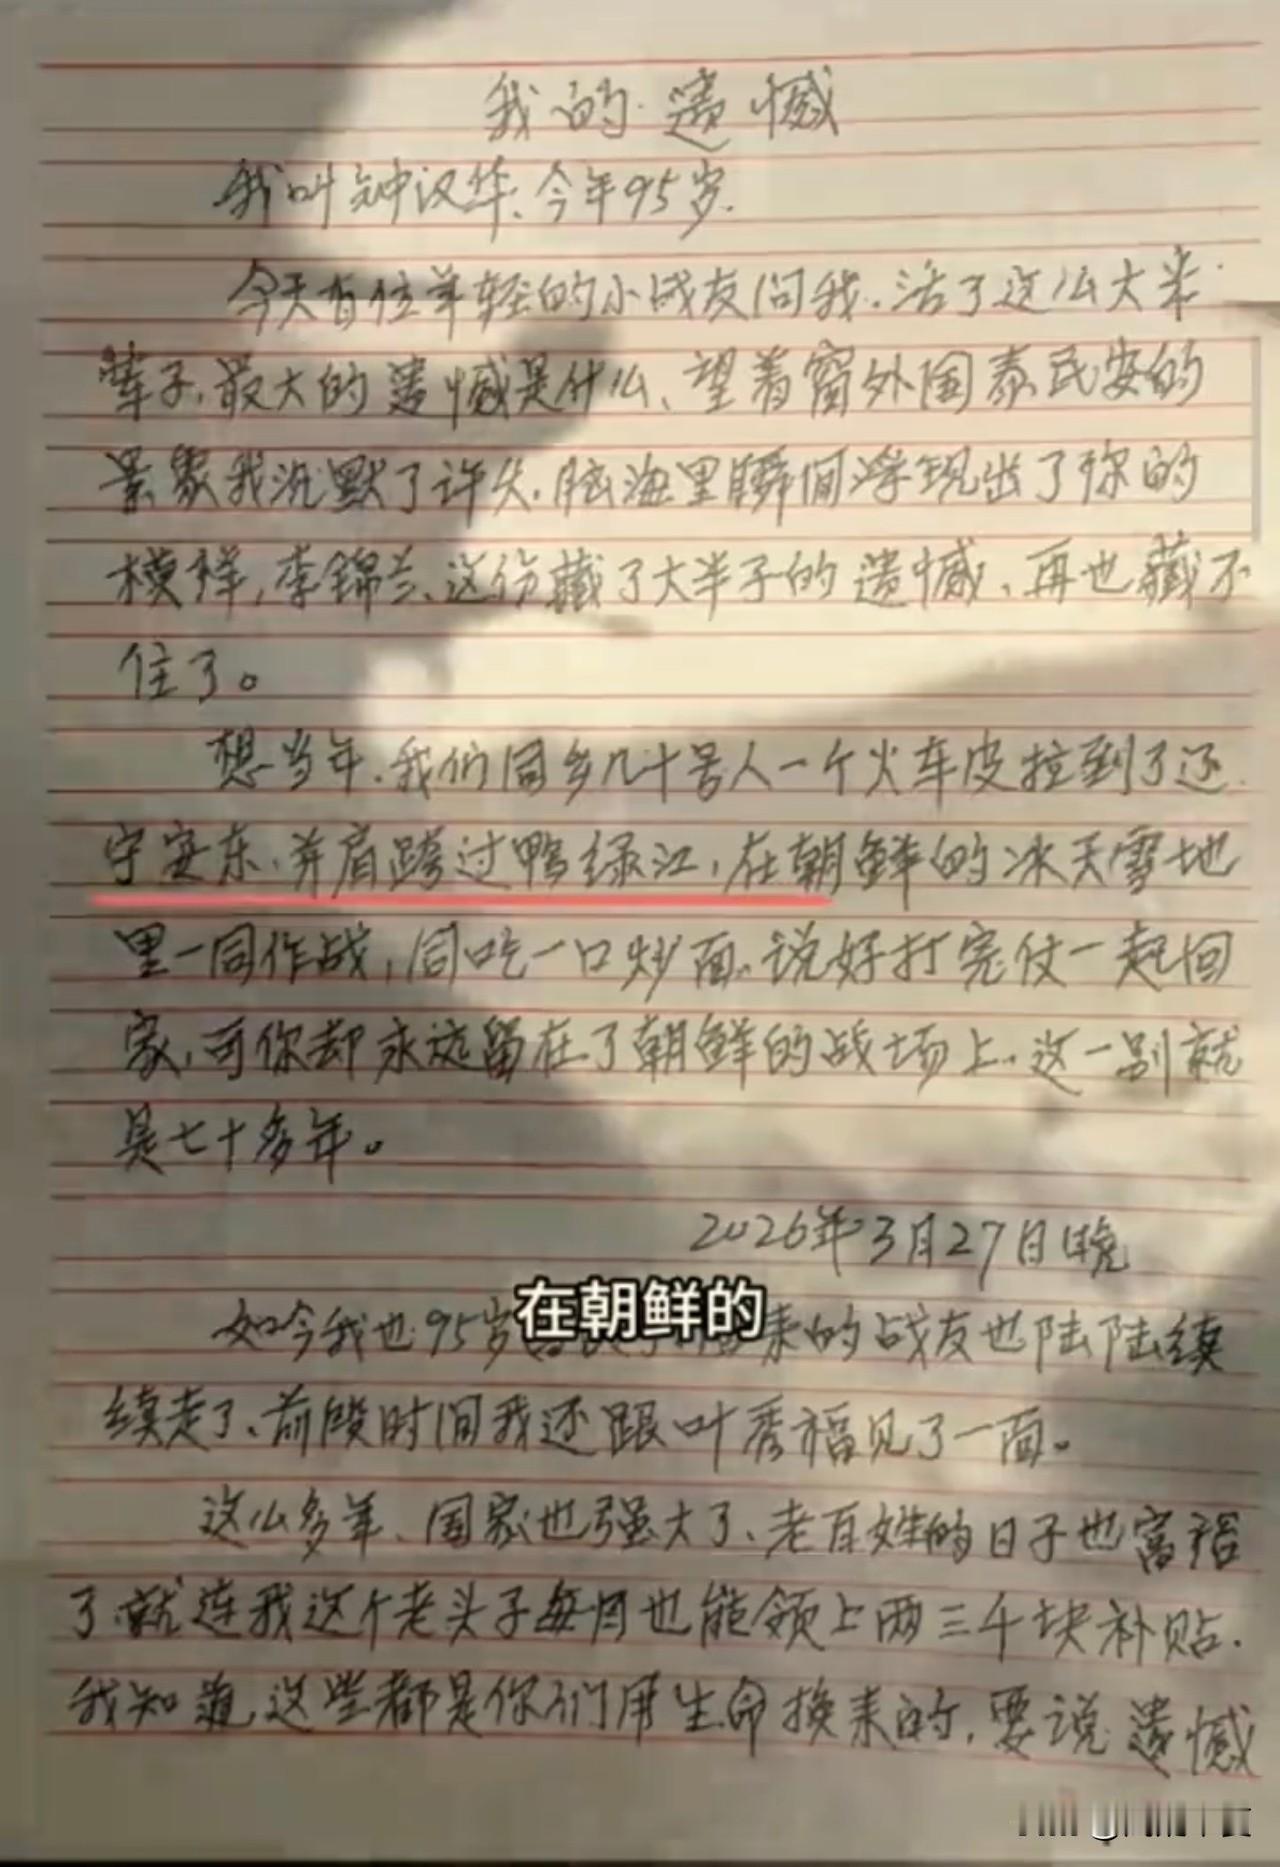 我的遗憾
我叫钟汉华、今年95岁.
今天有位年轻的小战友问我.活了这么大半
辈子,最大的遗憾是什么、望着窗外国泰民安的
景象我沉默了许久.脑海里瞬间浮现出了你的
模样,李锦兰、这份藏了大半子的遗憾、再也藏不
住了。
想当年.我们同乡几十号人一个火车皮拉到了辽
宁安东.并肩跨过鸭绿江,在朝鲜的冰天雪地
里一同作战,同吃一口炒面.说好打完仗一起回
家,可你却永远留在了朝鲜的战场上.这一别就
是七十多年。
2026年3月27日晚
在朝鲜的
如今我也95岁 来的战友也陆陆续
续走了、前段时间我还跟叶秀福见了一面。
这么多年、国家也强大了、老百姓的日子也富裕
了.就连我这个老头子每月也能领上两三千块补贴.
我知道,这些都是你们用生命换来的,要说遗憾